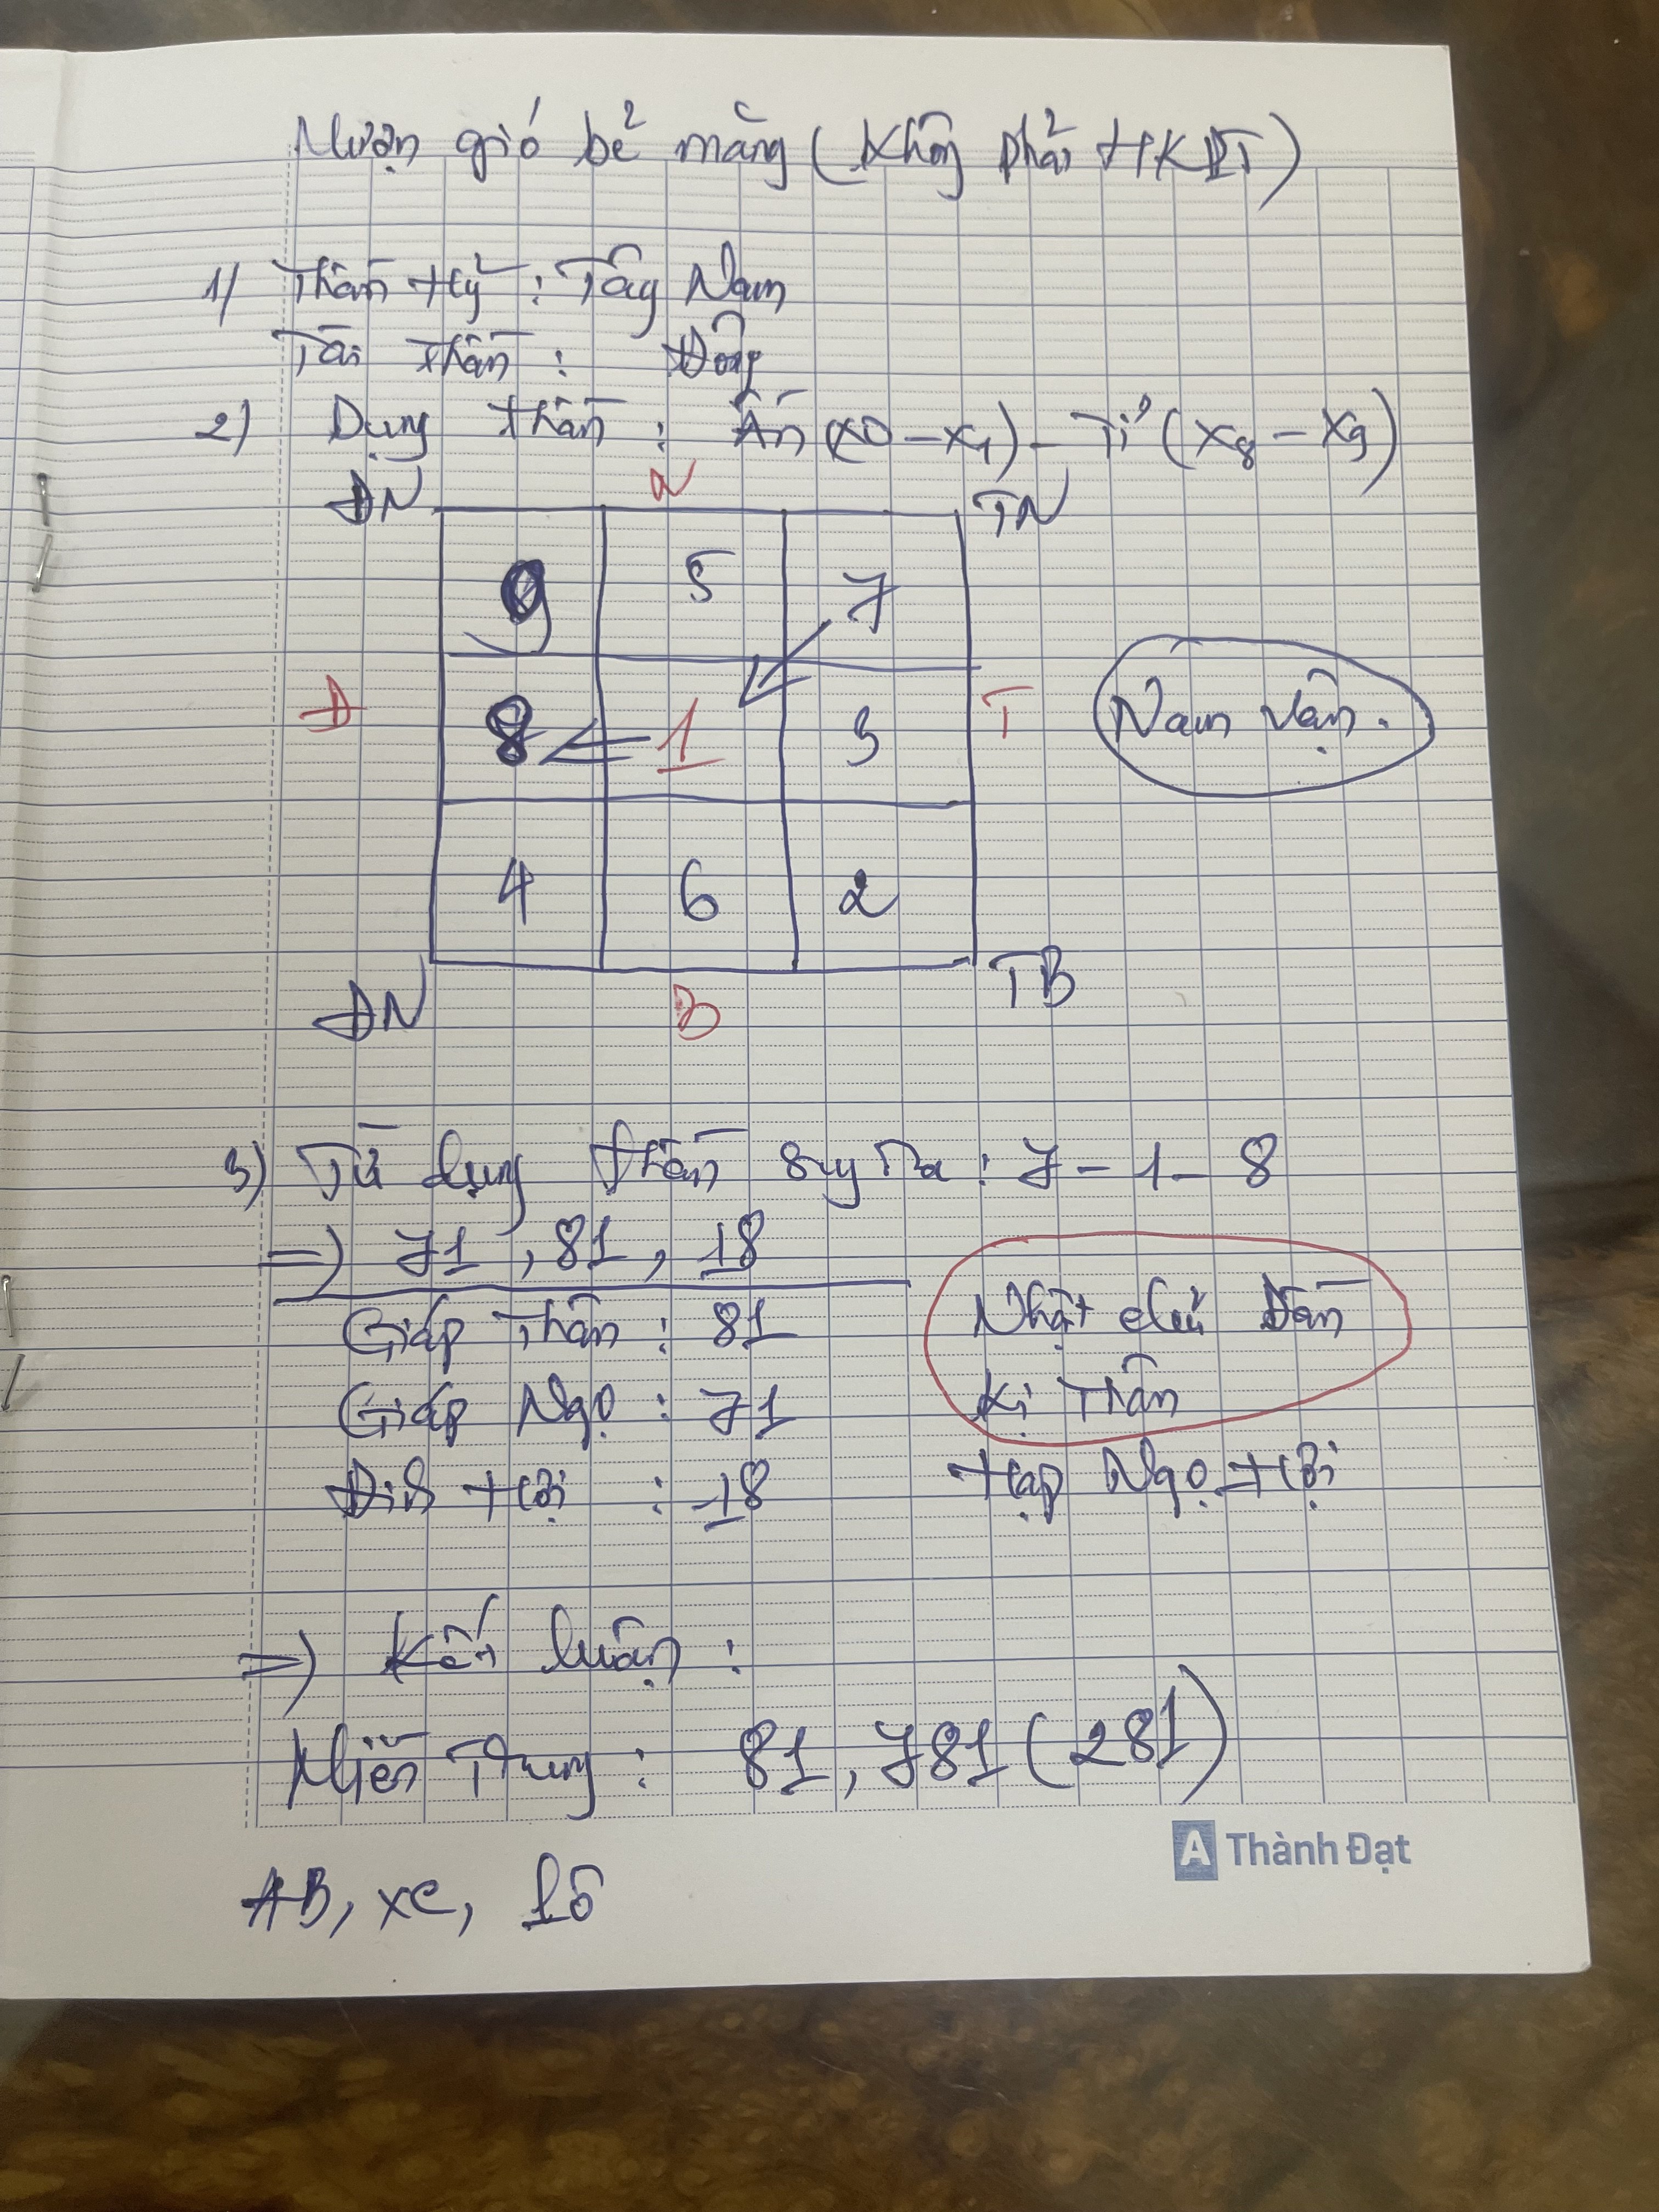 Mượn gió bẻ măng (Không phải HKĐT)
1) Thần Hỷ : Tây Nam
Tài thần : Đông
2) Dụng thần : Ấn (x0 - x1) - Tỉ (x8 - x9)
ĐN N TN
9 5 7
Đ 8 1 3 T Nam vận.
4 6 2
ĐN B TB
3) Từ dụng thần suy ra : 7 - 1 - 8
=> 71 , 81 , 18
Giáp Thân : 81 Nhật chủ Dần
Giáp Ngọ : 71 Kị Thân
Đinh Hợi : 18 Hạp Ngọ + Hợi
=> Kết luận :
Miền Trung : 81 , 781 (281)
A Thành Đạt
AB, xc, lô